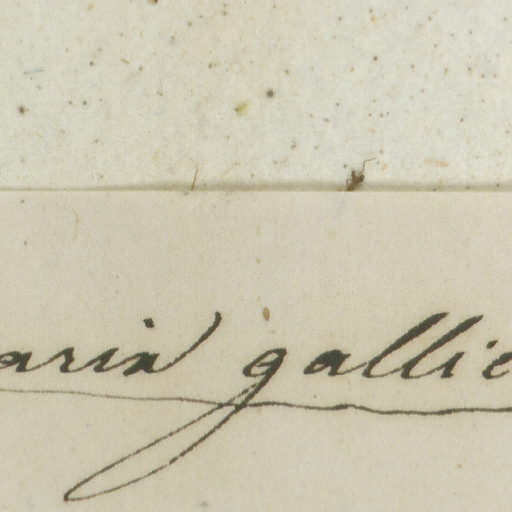 aria gallic